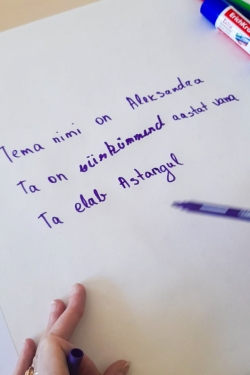 Tema nimi on Aleksandra
Ta on viiskümmend aastat vana
Ta elab Astangul
ErichKrause